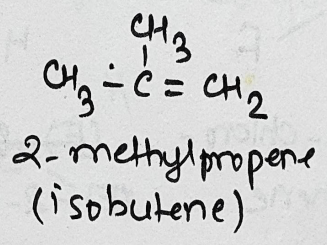 CH3
|
CH3 - C = CH2
2-methylpropene
(isobutene)